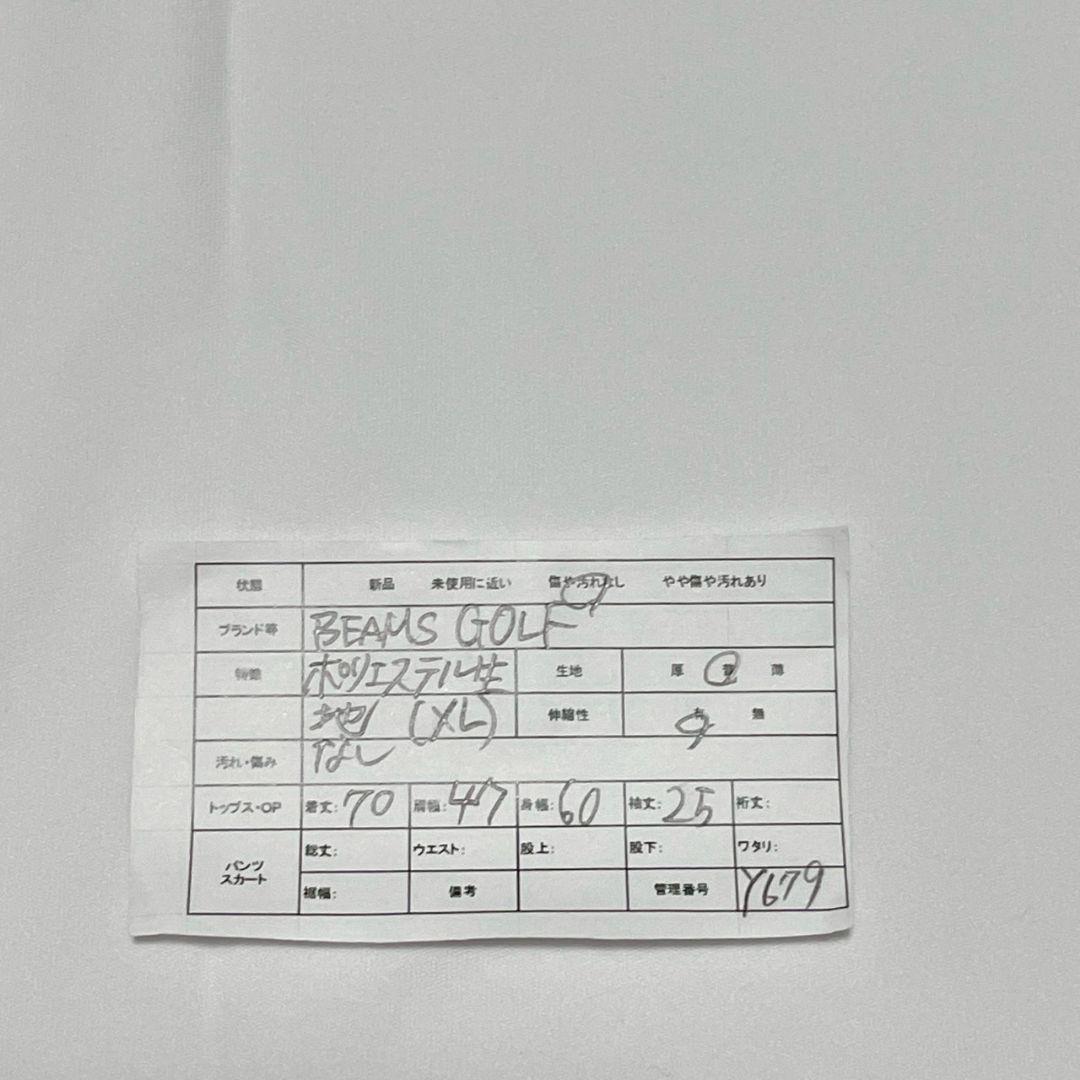 状態 新品 未使用に近い 傷や汚れなし やや傷や汚れあり
ブランド等 BEAMS GOLF
特徴 ポリエステル生 生地 厚 普 薄
地 (XL) 伸縮性 有 無
汚れ・傷み なし
トップス・OP 着丈:70 肩幅:47 身幅:60 袖丈:25 裄丈:
パンツ スカート 総丈: ウエスト: 股上: 股下: ワタリ:
裾幅: 備考 管理番号 Y679